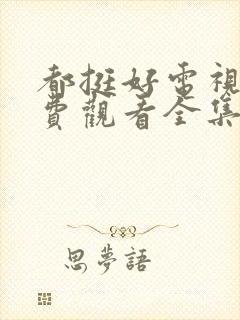 都挺好電視
費觀看全集
思夢語